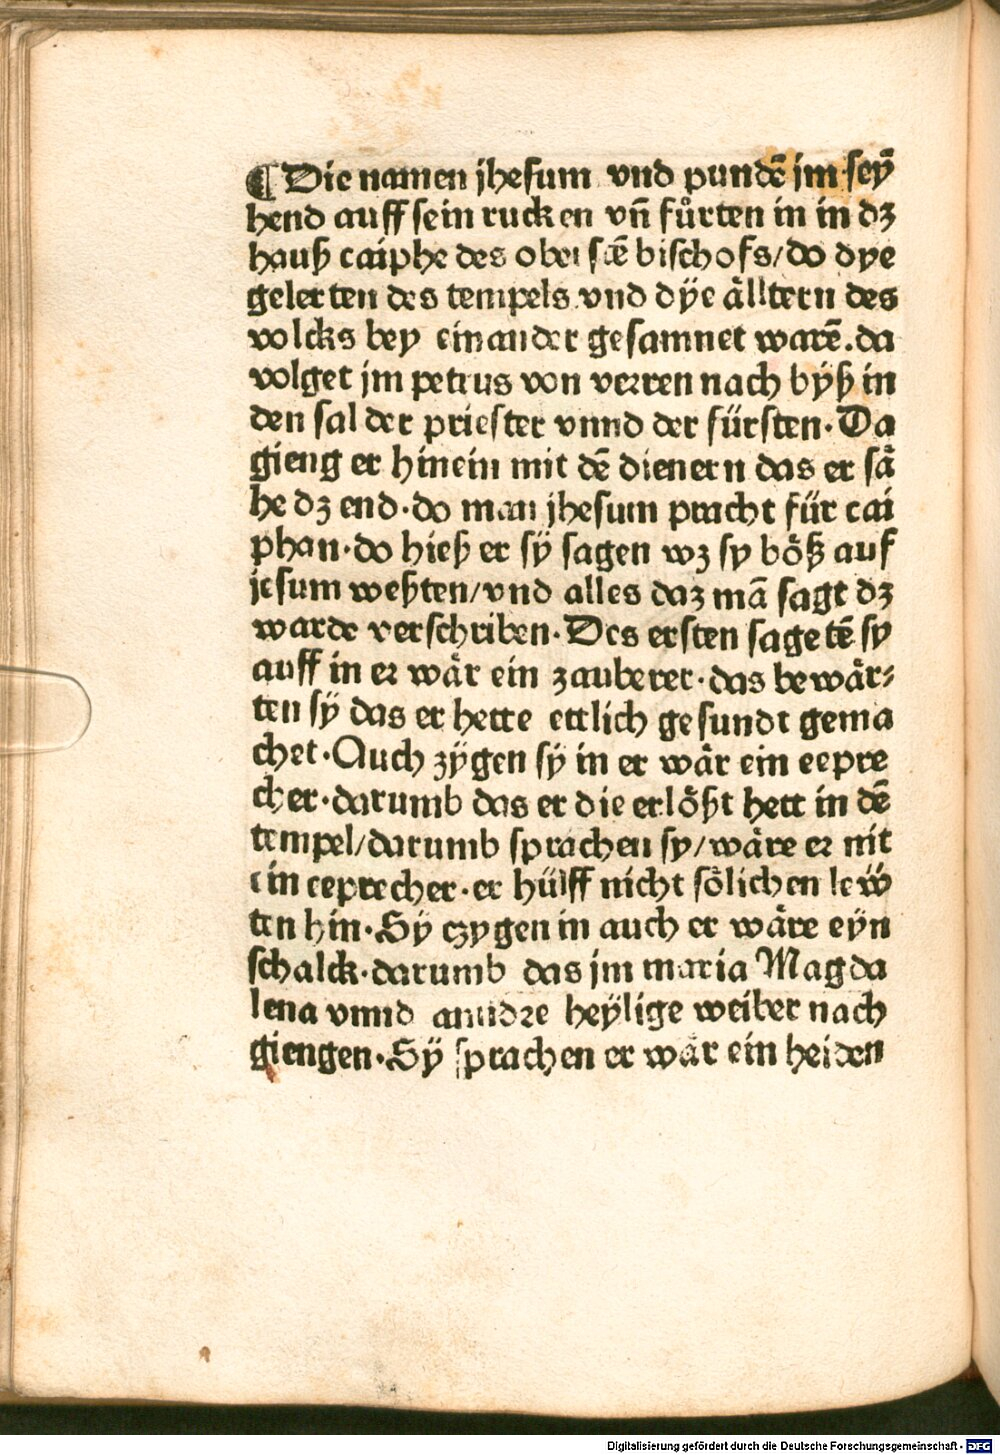 ¶Die namen jhesum vnd pundē jm sey̅
hend auff sein rucken vn̄ fůrten in in dʒ
hauß caiphe des obersiē bischofs/do dye
gelerten des tempels vnd dÿe älltern des
volcks bey einander gesamnet warē.da
volget jm petrus von verren nach byß in
den sal der priester vnnd der fürsten·Da
gieng er hinein mit dē dienern das er sä
he dʒ end·do man jhesum pracht für cai
phan·do hieß er sÿ sagen wʒ sy böß auf
jesum weßten/vnd alles daʒ mā sagt dʒ
warde verschriben·Des ersten sagetē sy
auff in eꝛ wär ein zauberer·das bewär⸗
ten sÿ das er hette ettlich gesundt gema
chet·Auch zÿgen sÿ in er wär ein eepre
cher·darumb das er die erlößt hett in dē
tempel/darumb sprachen sy/wäre eꝛ nit
ein eeprecher·er hülff nicht sölichen leẅ
ten hin·Sÿ czygen in auch er wäre eyn
schalck·darumb das jm maria Magda
lena vnnd anndꝛe heÿlige weiber nach
giengen·Sÿ sprachen er wär ein heiden
Digitalisierung gefördert durch die Deutsche Forschungsgemeinschaft - DFG